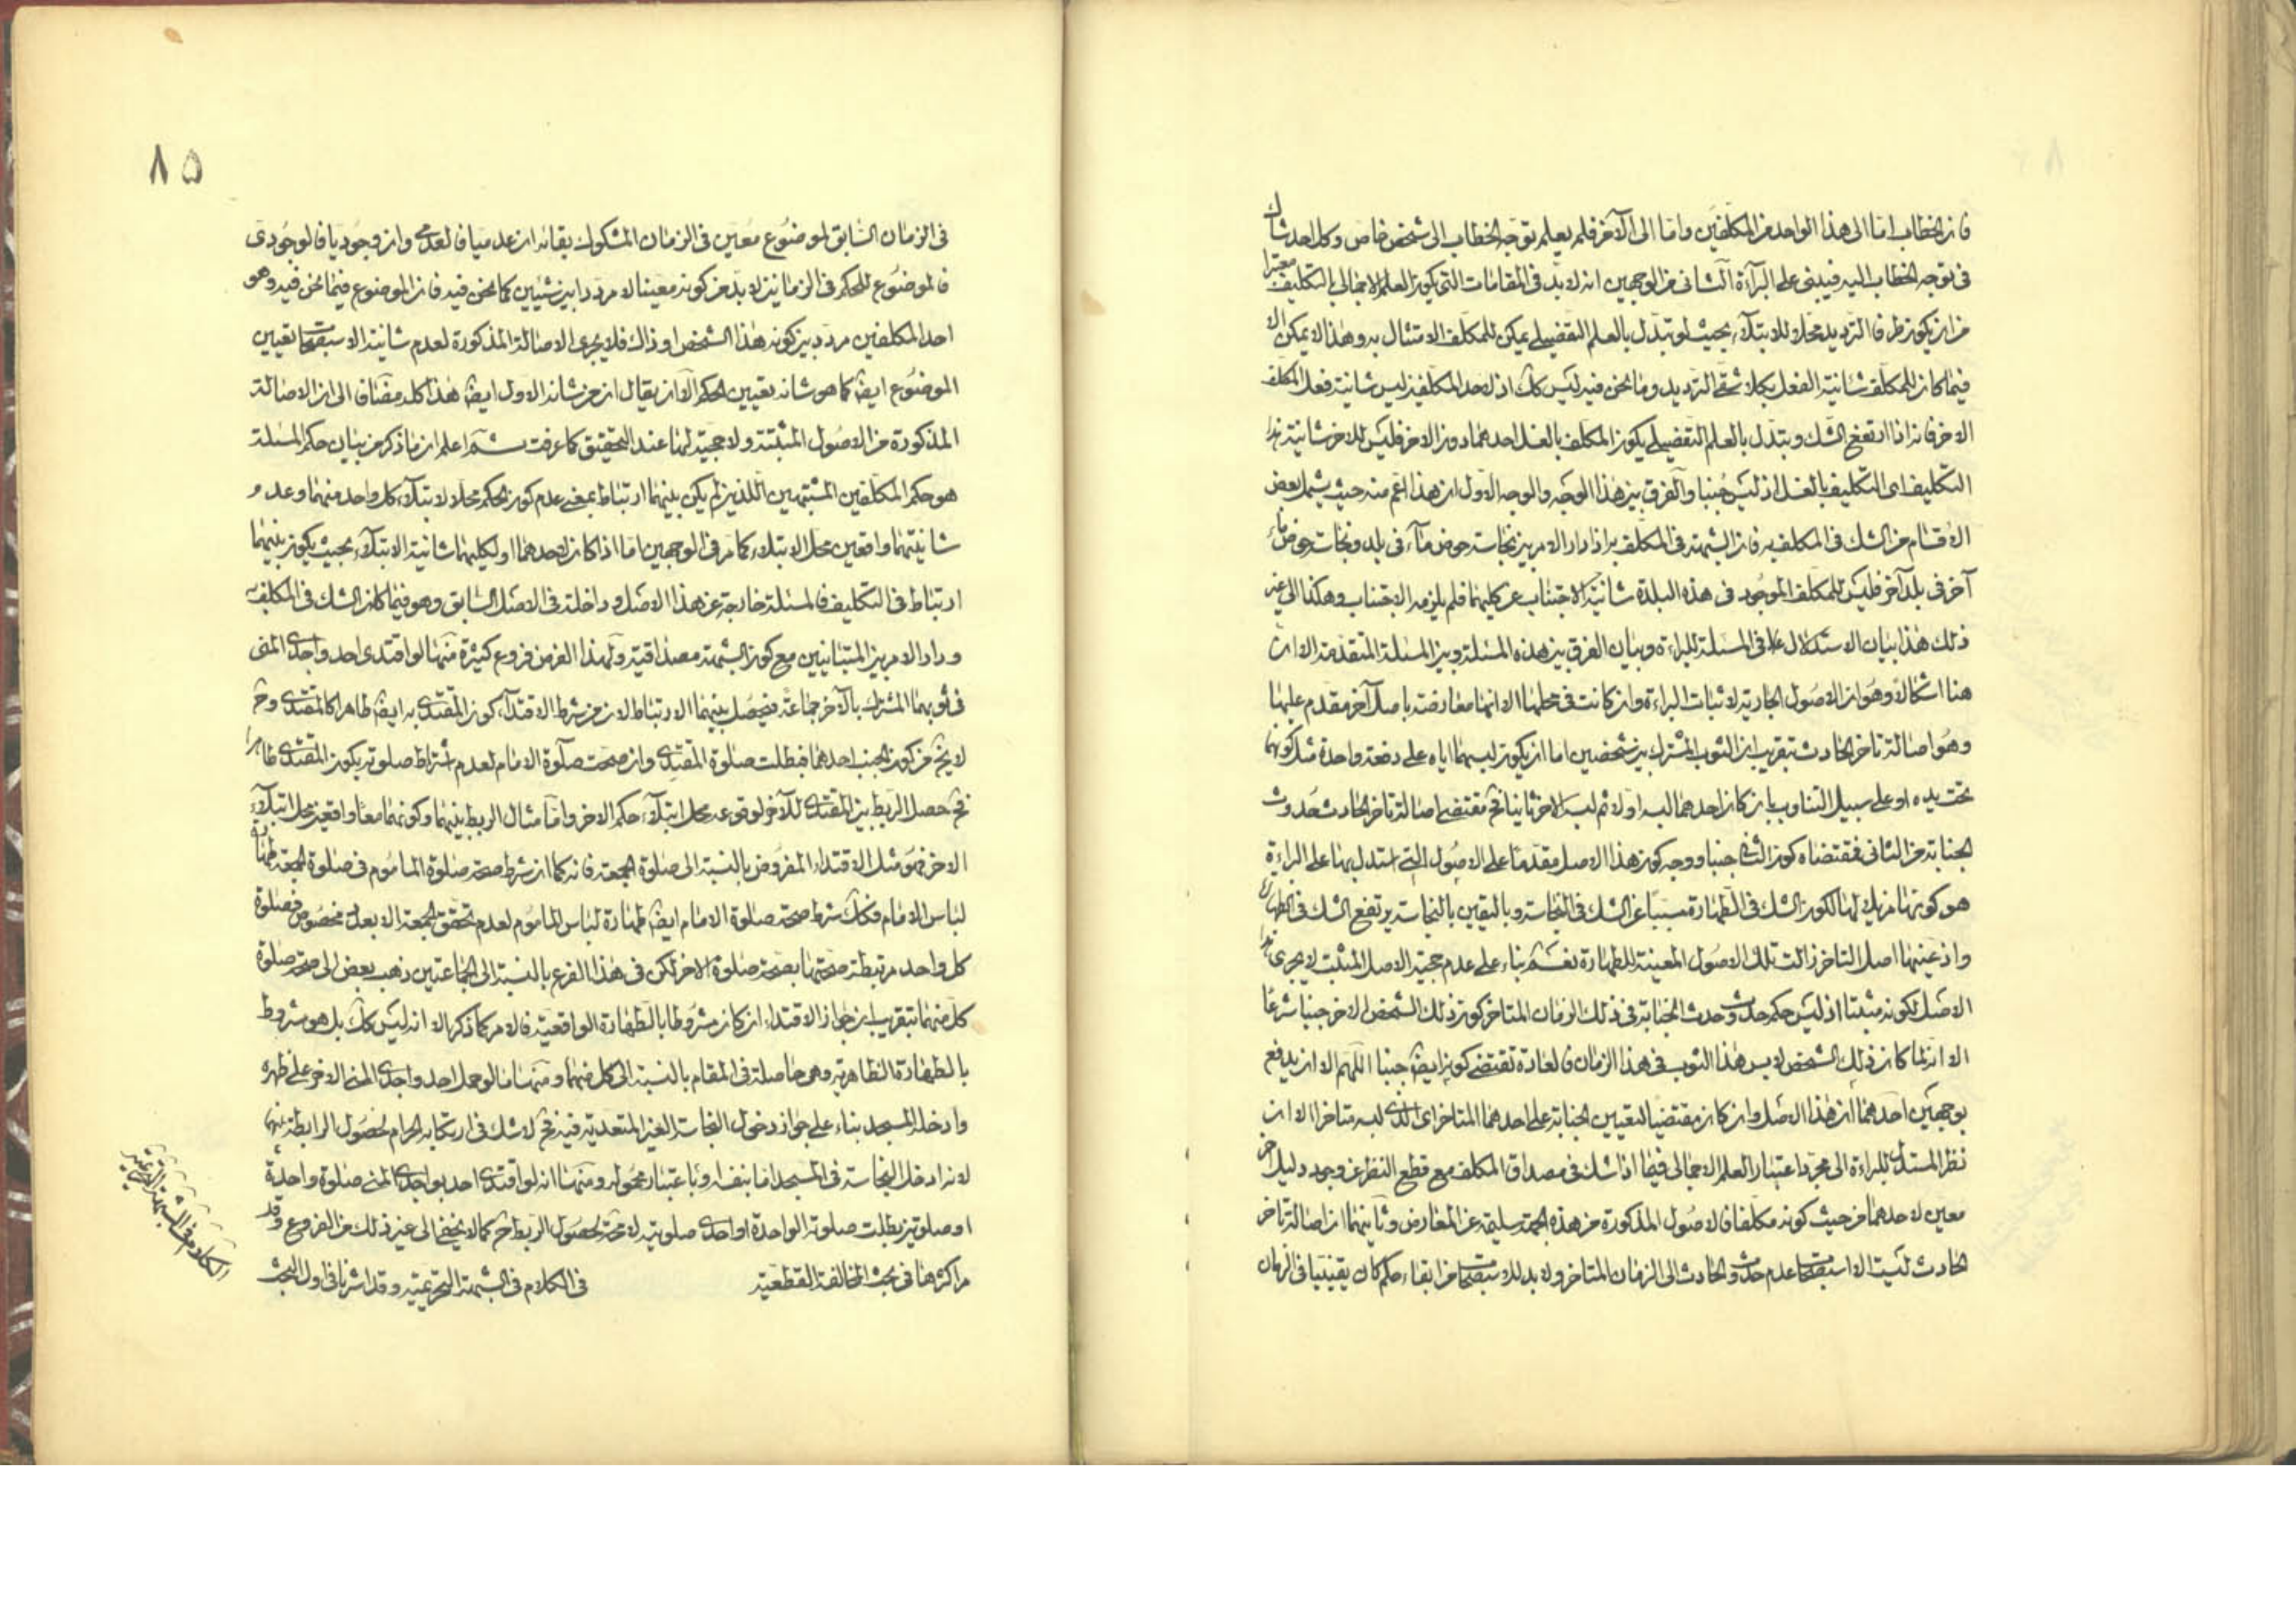 فان الخطاب اما الى هذا الواحد من المكلفين واما الى الآخر فلم يعلم توجه الخطاب الى شخص خاص وكل احد شاك
فى توجه الخطاب اليه فيبنى على البرآءة الثانى من الوجهين انه لا بد فى المقامات التى يكون العلم الاجمالى بالتكليف معتبرا
من ان يكون طرفا الترديد محلا للابتلاء بحيث لو تبدل بالعلم التفصيلى يمكن للمكلف الامتثال به وهذا لا يمكن الا
فيما كان للمكلف شانية الفعل بكلا شقى الترديد وما نحن فيه ليس كك اذ لاحد المكلفين ليس شانية فعل المكلف
الاخر فانه اذا ارتفع الشك وتبدل بالعلم التفصيلى يكون المكلف بالغسل احدهما دون الاخر فليس للاخر شانية هذا
التكليف اى التكليف بالغسل اذ ليس جنبا والفرق بين هذا الوجه والوجه الاول ان هذا اعم منه حيث يشمل بعض
الاقسام من الشك فى المكلف به فان الشبهة فى المكلف به اذا دار الامر بين نجاسة حوض ماء فى بلد ونجاسة حوض ماء
آخر فى بلد آخر فليس للمكلف الموجود فى هذه البلدة شانية الاجتناب عن كليهما فلم يلزمه الاجتناب وهكذا الى غير
ذلك هذا بيان الاستدلال على فى المسئلة للبراءة وبيان الفرق بين هذه المسئلة وبين المسئلة المتقدمة الا ان
هنا اشكالا وهو ان الاصول الجارية لاثبات البراءة وان كانت فى محلها الا انها معارضة باصل آخر مقدم عليها
وهو اصالة تاخر الحادث بتقريب ان الثوب المشترك بين شخصين اما ان يكون لبسهما اياه على دفعة واحدة مثل كونهما
تحت يده او على سبيل التناوب بان كان احدهما لبسه اولا ثم لبسه الاخر ثانيا فح مقتضى اصالة تاخر الحادث حدوث
الجنابة من الثانى فمقتضاه كون الثانى جنبا ووجه كون هذا الاصل مقدما على الاصول التى استدل بها على البراءة
هو كونها مزيل لها لكون الشك فى الطهارة مسببا عن الشك فى النجاسة وباليقين بالنجاسة يرتفع الشك فى الطهارة
واذ عينها اصل التاخر زالت تلك الاصول المعينة للطهارة نعم بناء على عدم حجية الاصل المثبت لا يجرى هذا
الاصل لكونه مثبتا اذ ليس حكم حدوث وحدث الجنابة فى ذلك الزمان المتاخر كون ذلك الشخص الاخر جنبا شرعا
الا انه لما كان ذلك الشخص لابس هذا الثوب فى هذا الزمان فالعادة تقتضى كونه ايضا جنبا اللهم الا ان يدفع
بوجهين احدهما ان هذا الاصل وان كان مقتضيا لتعيين الجنابة على احدهما المتاخر اى الذى لبسه متاخرا الا ان
نظر المستدل للبراءة الى مجرد اعتبار العلم الاجمالى فيما اذا شك فى مصداق المكلف مع قطع النظر عن وجود دليل اخر
معين لاحدهما من حيث كونه مكلفا فالاصول المذكورة من هذه الجهة سليمة عن المعارض وثانيهما ان اصالة تاخر
الحادث ليست الا استصحاب عدم حدوث الحادث الى الزمان المتاخر ولا بد للاستصحاب من ابقاء حكم كان يقينيا فى الزمان
٨٥
فى الزمان السابق لموضوع معين فى الزمان المشكوك بقائه ان عدميا فالعدمى وان وجوديا فالوجودى
فالموضوع للحكم فى الزمانين لا بد من كونه معينا لا مرددا بين شيئين كما نحن فيه فان الموضوع فيما نحن فيه وهو
احد المكلفين مردد بين كونه هذا الشخص او ذاك فلا يجرى الاصالة المذكورة لعدم شانية الاستصحاب تعيين
الموضوع ايضا كما هو شانه تعيين الحكم الا ان يقال ان من شانه الاول ايضا هذا كله مضاف الى ان الاصالة
المذكورة من الاصول المثبتة ولا حجية لها عند التحقيق كما عرفت ثم اعلم ان ما ذكر من بيان حكم المسئلة
هو حكم المكلفين المشتبهين اللذين لم يكن بينهما ارتباط بمعنى عدم كون الحكم محلا لابتلاء كل واحد منهما وعدم
شانيتهما واقعين محل الابتلاء كما مر فى الوجهين اما اذا كان لاحدهما او لكليهما شانية الابتلاء بحيث يكون بينهما
ارتباط فى التكليف فالمسئلة خارجة عن هذا الاصل وداخلة فى الاصل السابق وهو فيما كان الشك فى المكلف به
ودار الامر بين المتباينين مع كون الشبهة مصداقية ولهذا الفرض فروع كثيرة منها لو اقتدى احد واجدى المنى
فى ثوبهما المشترك بالآخر جماعة فيحصل بينهما الارتباط لان من شرط الاقتدآء كون المقتدى به ايضا طاهرا كالمقتدى وح
لا يخ من كون الجنب احدهما فبطلت صلوة المقتدى وان صحت صلوة الامام لعدم اشتراط صلوته بكون المقتدى طاهرا
فح حصل الربط بين المقتدى للآخر لوقوعه محل ابتلآء حكم الاخر واما مثال الربط بينهما وكونهما معا واقعين محل ابتلاء
الاخر فهو مثل الاقتداء المفروض بالنسبة الى صلوة الجمعة فانه كما ان شرط صحة صلوة الماموم فى صلوة الجمعة طهارة
لباس الامام فكك شرط صحة صلوة الامام ايضا طهارة لباس الماموم لعدم تحقق الجمعة الا بعدد مخصوص فصلوة
كل واحد مرتبطة صحتها بصحة صلوة الاخر لكن فى هذا الفرع بالنسبة الى الجماعتين ذهب بعض الى صحة صلوة
كل منهما بتقريب ان جواز الاقتداء ان كان مشروطا بالطهارة الواقعية فالامر كما ذكر الا انه ليس كك بل هو مشروط
بالطهارة الظاهرية وهى حاصلة فى المقام بالنسبة الى كل منهما ومنها ما لو حمل احد واجدى المنى الاخر على ظهره
وادخله المسجد بناء على جواز دخول النجاسة الغير المتعدية فيه فح لا شك فى ارتكابه الحرام لحصول الرابطة بينهما
لانه ادخل النجاسة فى المسجد اما بنفسه او باعتبار محموله ومنها انه لو اقتدى احد بواجدى المنى صلوة واحدة
او صلوتين بطلت صلوته الواحدة او احدى صلوتيه لا محة لحصول الربط ح كما لا يخفى الى غير ذلك من الفروع وقد
مر اكثرها فى بحث المخالفة القطعية فى الكلام فى الشبهة التحريمية وقد اشرنا فى اول البحث
الكلام فى الشبهة التحريمية